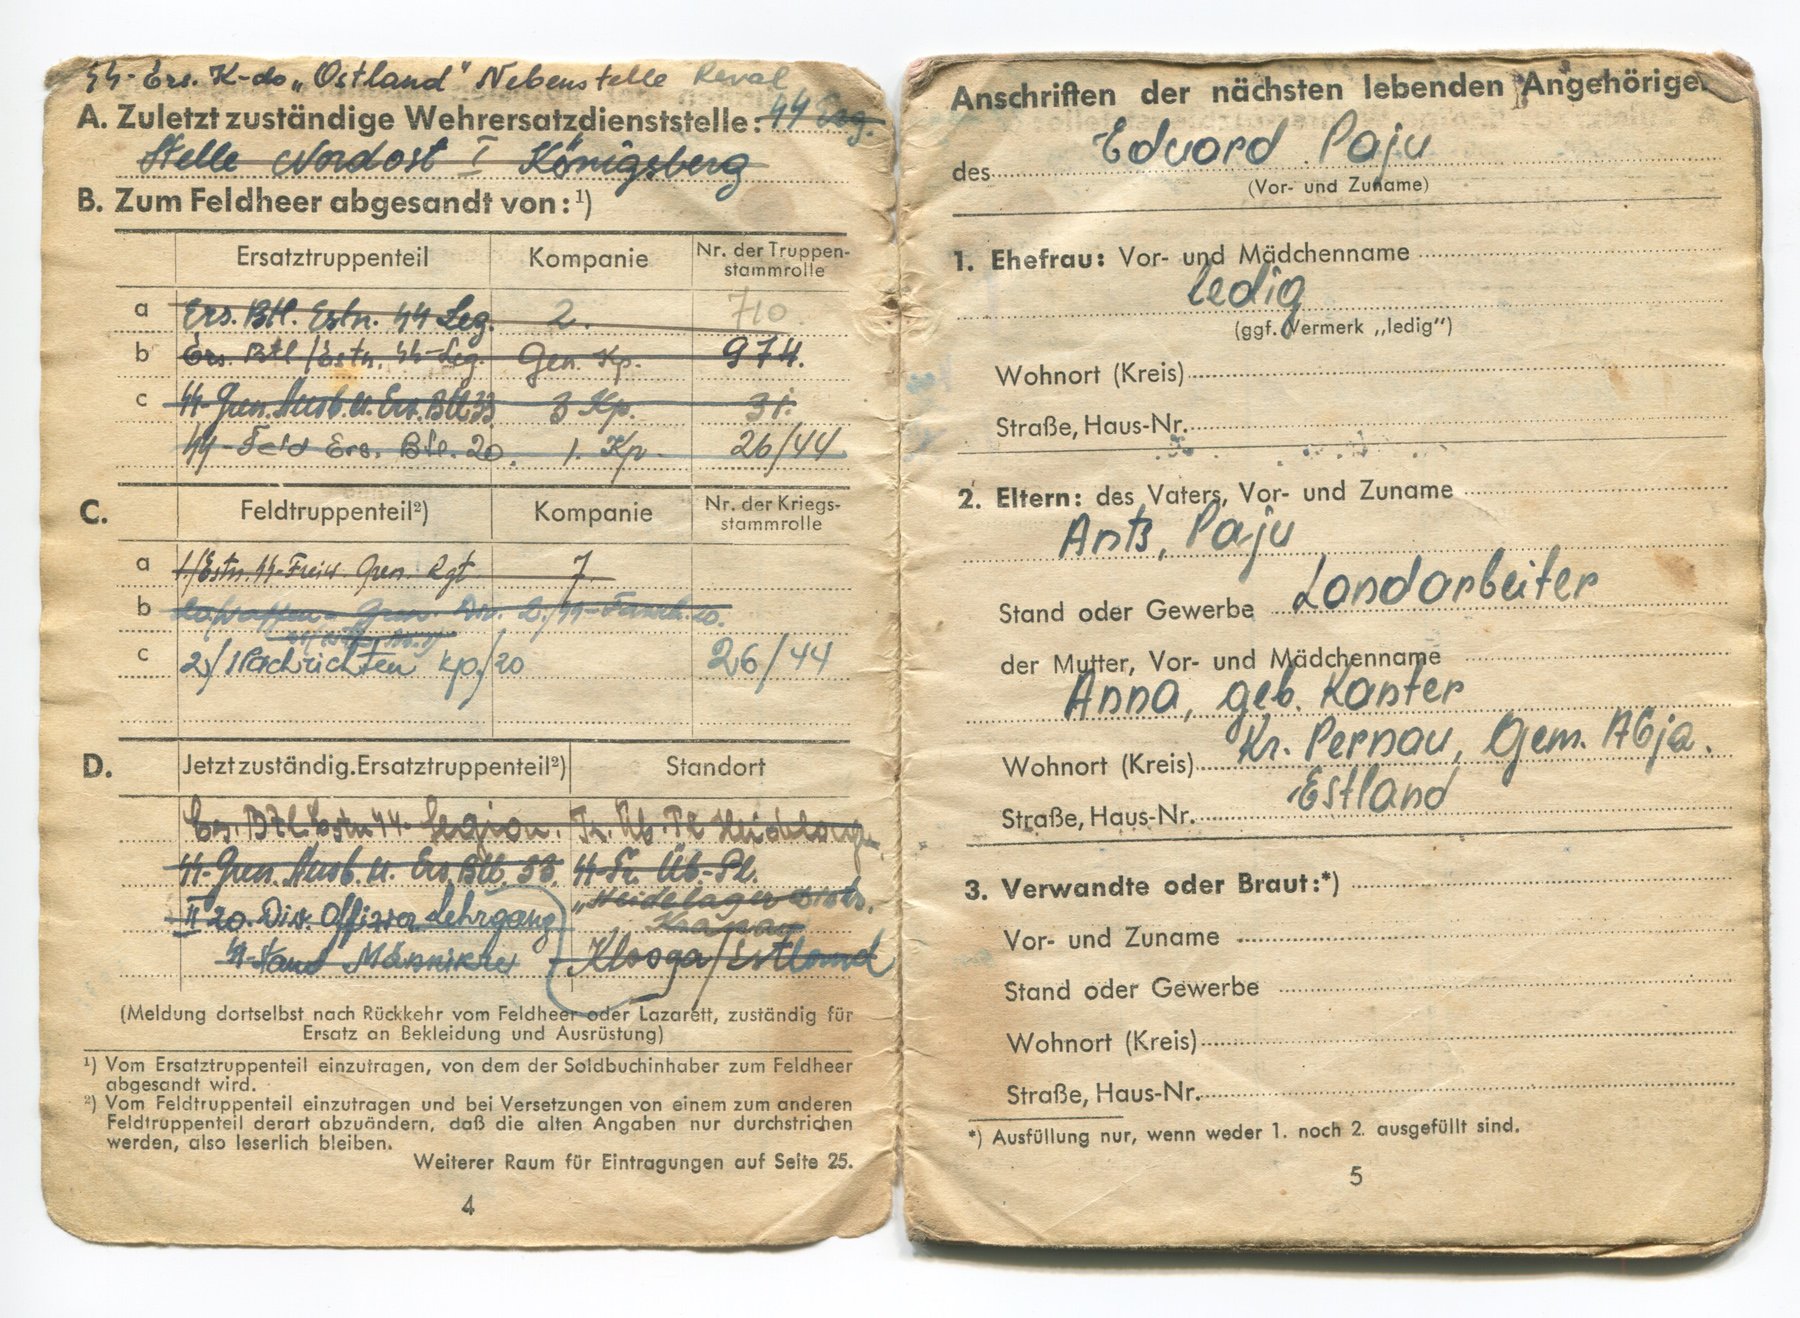 SS-Ers. K-do „Ostland" Nebenstelle Reval
A. Zuletzt zuständige Wehrersatzdienststelle: SS Erg.
Stelle Nordost I Königsberg
B. Zum Feldheer abgesandt von: ¹)
Ersatztruppenteil Kompanie Nr. der Truppen-
stammrolle
a Ers. Btl. Estn. SS Leg. 2. 710
b Ers. Btl/Estn. SS-Leg. Gen. Kp. 974.
c SS-Gren. Ausb. u. Ers. Btl. 33 3 Kp. 31.
SS-Feld Ers. Btl. 20. 1. Kp. 26/44
C. Feldtruppenteil²) Kompanie Nr. der Kriegs-
stammrolle
a 1/Estn. SS-Freiw. Gren. Rgt 7.
b Div.
c 2/Nachrichten Kp./20 26/44
D. Jetzt zuständig. Ersatztruppenteil²) Standort
Ers. Btl. Estn SS-Legion. Tr. Üb. Pl Heidelager
SS-Gren. Ausb. u. Ers. Btl. 33. SS-Tr. Üb-Pl.
„Heidelager
II 20. Div. Offizier Lehrgang
Klooga/Estland
(Meldung dortselbst nach Rückkehr vom Feldheer oder Lazarett, zuständig für
Ersatz an Bekleidung und Ausrüstung)
¹) Vom Ersatztruppenteil einzutragen, von dem der Soldbuchinhaber zum Feldheer
abgesandt wird.
²) Vom Feldtruppenteil einzutragen und bei Versetzungen von einem zum anderen
Feldtruppenteil derart abzuändern, daß die alten Angaben nur durchstrichen
werden, also leserlich bleiben.
Weiterer Raum für Eintragungen auf Seite 25.
4
Anschriften der nächsten lebenden Angehörige
des Eduard Paju
(Vor- und Zuname)
1. Ehefrau: Vor- und Mädchenname
ledig
(ggf. Vermerk „ledig")
Wohnort (Kreis)
Straße, Haus-Nr.
2. Eltern: des Vaters, Vor- und Zuname
Ants, Paju
Stand oder Gewerbe Landarbeiter
der Mutter, Vor- und Mädchenname
Anna, geb. Kanter
Wohnort (Kreis) Kr. Pernau, Gem. Abja.
Straße, Haus-Nr. Estland
3. Verwandte oder Braut:*)
Vor- und Zuname
Stand oder Gewerbe
Wohnort (Kreis)
Straße, Haus-Nr.
*) Ausfüllung nur, wenn weder 1. noch 2. ausgefüllt sind.
5